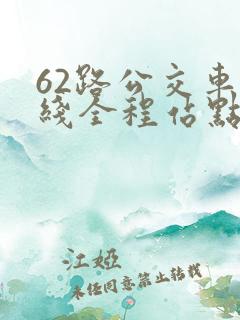 62路公交车
綫全程佔點
江婭
未任同意禁止转载